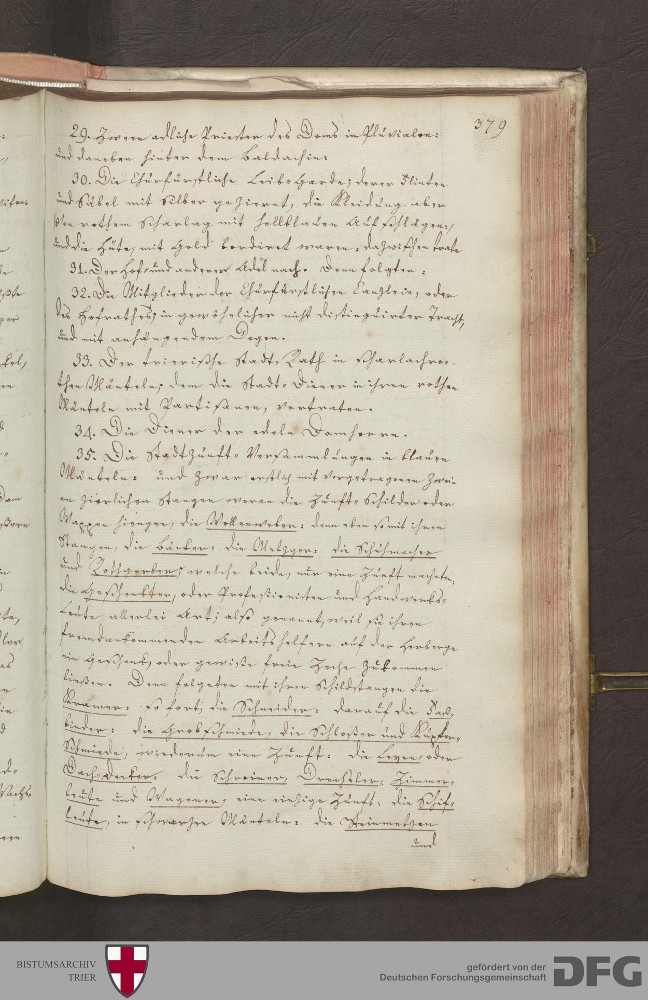 379
29. Zween adliche Priester des Doms in Pluvialen:
und daneben hinter dem Baldachin:
30. Die Churfürstliche Leib-Garde; deren Flinten
und Säbel mit Silber gezieret, die Kleidung aber
von rothem Scharlag mit hellblauen Aufschlägen,
und die Hüte, mit Gold bordiret waren: dazwischen trate
31. Der Hof- und anderer Adel nach. Denn folgten:
32. Die Mitglieder der Churfürstlichen Canzlei, oder
des Hofrathes, in gewöhnlicher nicht distinguirter Tracht,
und mit anhangendem Degen.
33. Der trierische Stadt-Rath in scharlachro-
then Mänteln; dem die Stadt-Diener in ihren rothen
Mänteln mit Partisanen, vortraten.
34. Die Diener der edeln Domherrn.
35. Die Stadtzunft-Versammlungen in blauen
Mänteln: und zwar erstlich mit vorgetragenen zwei-
en zierlichen Stangen woran die Zunft-Schilder oder
Wappen hiengen, die Wollenweber: dann eben so mit ihren
Stangen, die Bäcker: die Metzger: die Schuhmacher
und Rothgerber; welche beide, nur eine Zunft machten,
die Geschenkten, oder Professionisten und Handwerks-
Leute allerlei Art; also genannt, weil sie ihren
fremdankommenden Arbeitshelfern auf der Herberge
ein Geschenk, oder gewisse freie Zeche zukommen
liessen. Denn folgeten mit ihren Schildstangen die
Kramer: so fort, die Schneider: darauf die Fas-
binder: die Grobschmiede, die Schlosser und Kupfer-
schmiede, wiederum eine Zunft: die Leyen- oder
Dachdecker, die Schreiner, Drechsler, Zimmer-
leute und Wagener, eine einzige Zunft: die Schif-
leute, in schwarzen Mänteln: die Steinmetzen
und
BISTUMSARCHIV
TRIER
gefördert von der
Deutschen Forschungsgemeinschaft
DFG